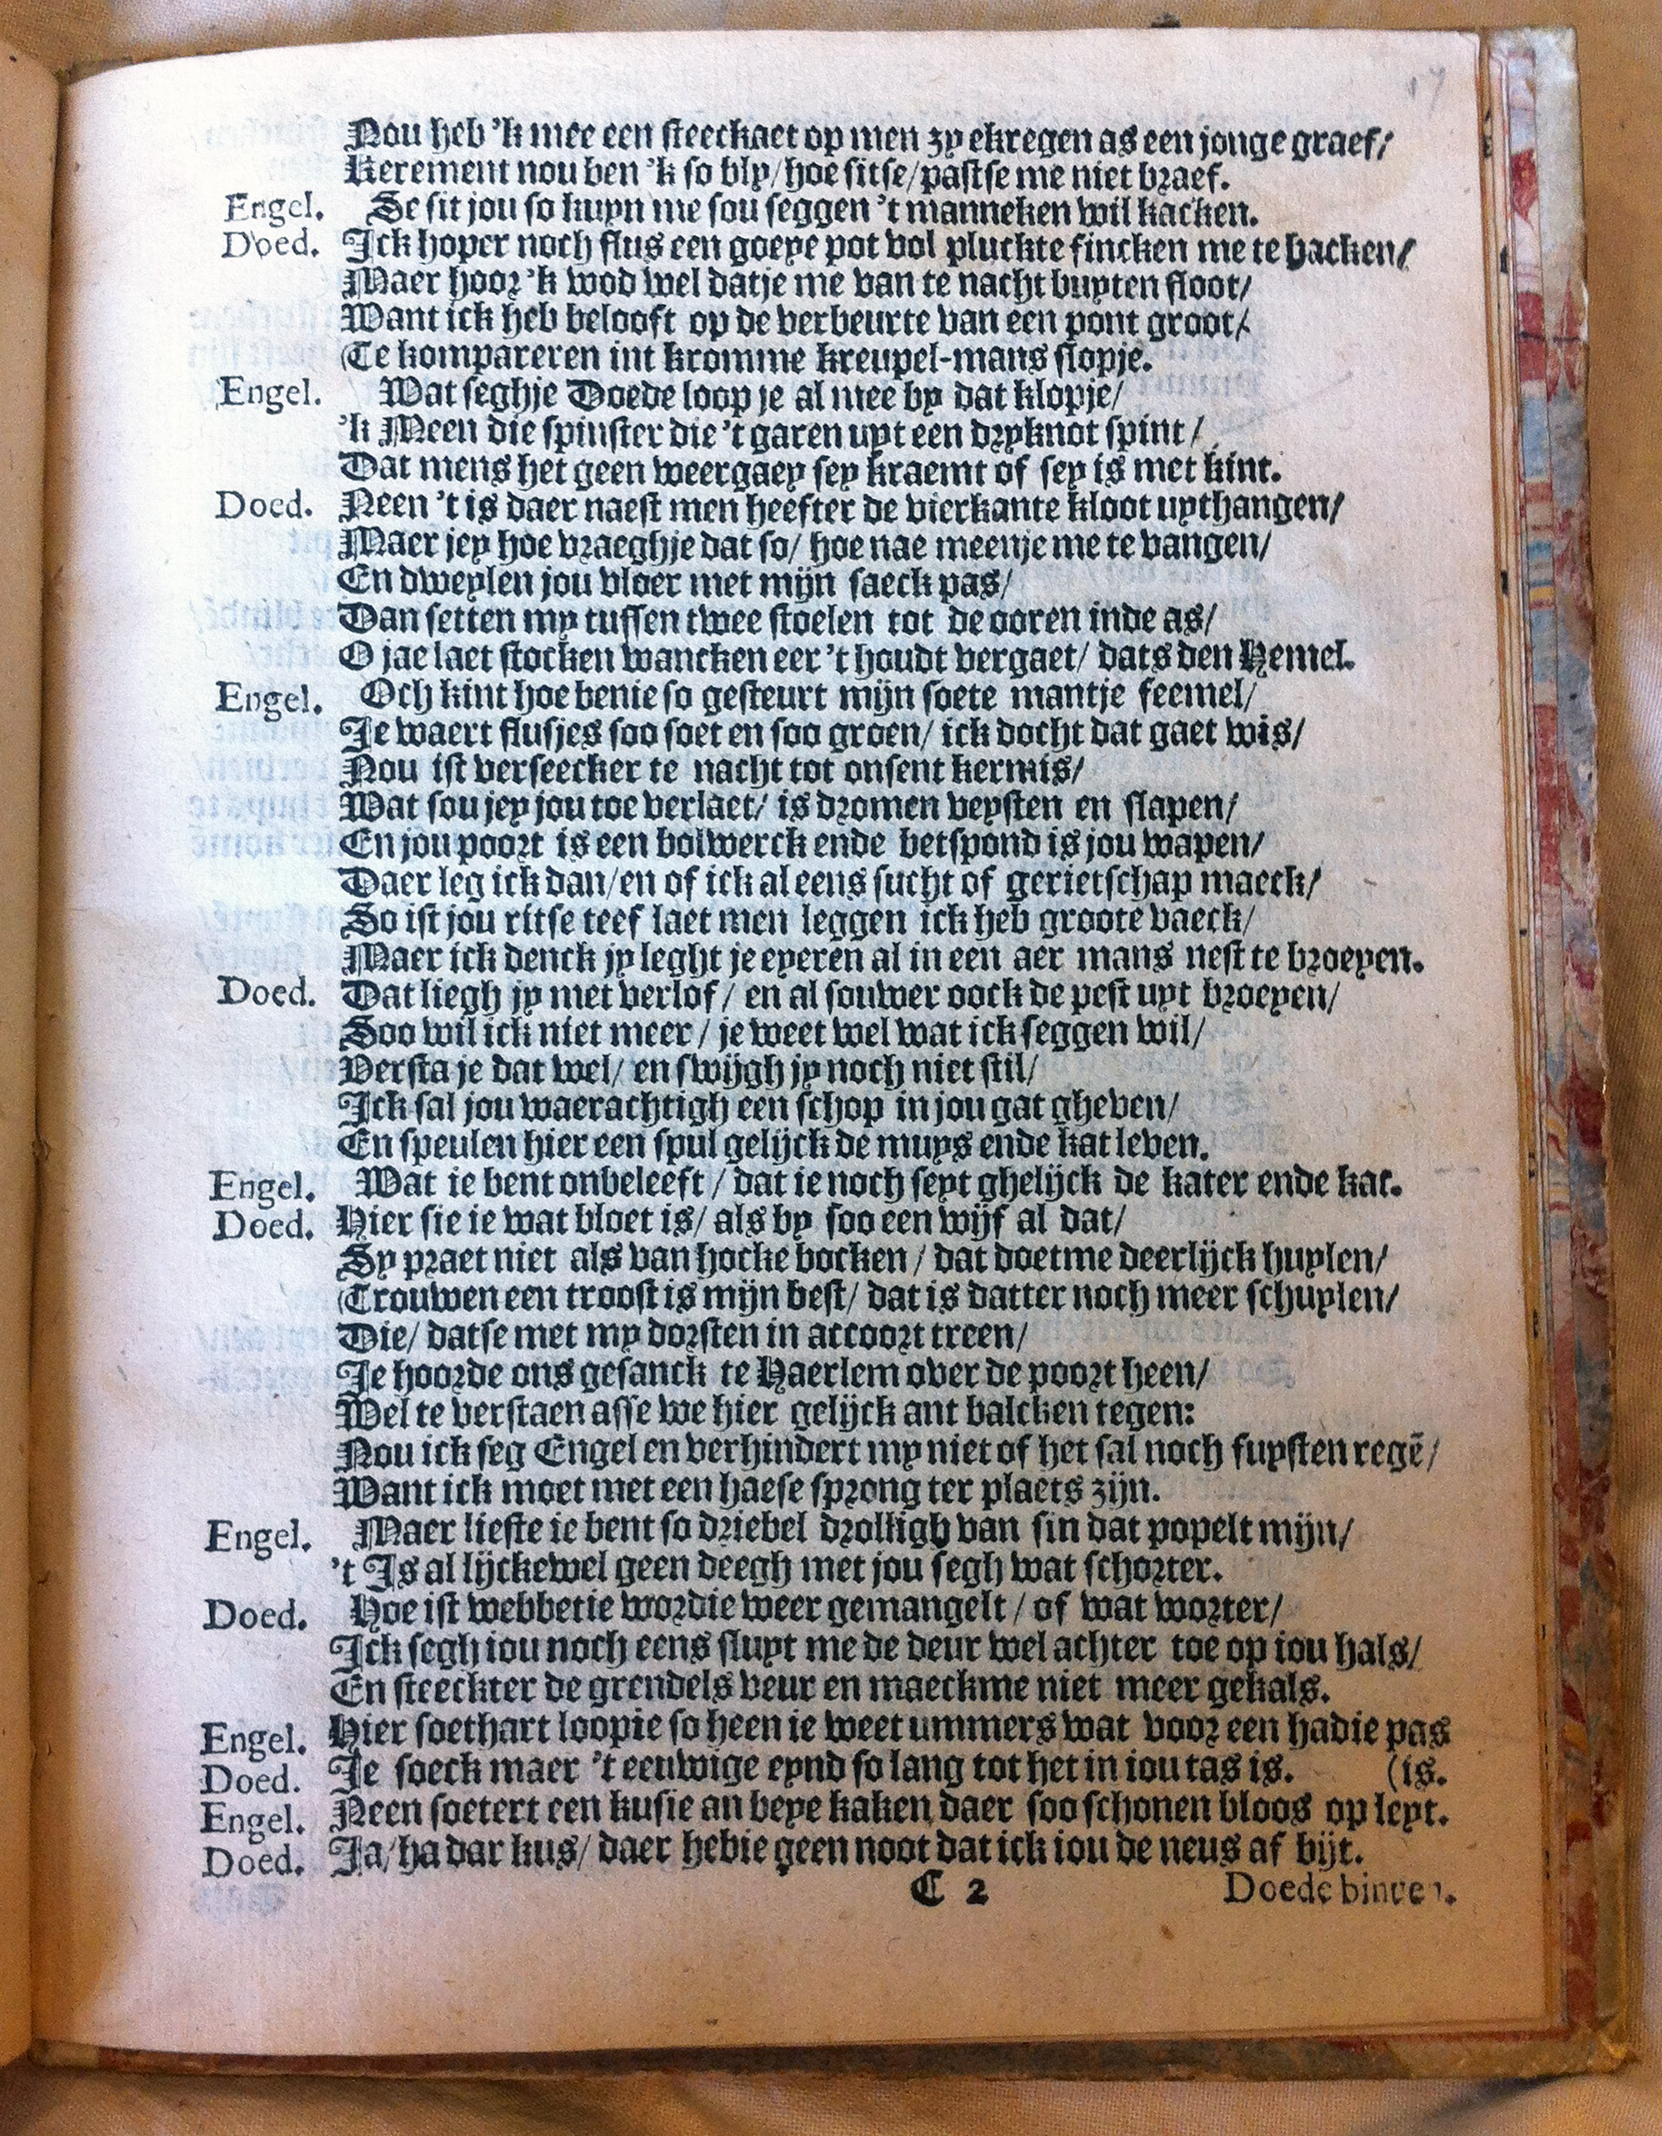 17
Nou heb 'k mee een steeckaet op men zy ekregen as een jonge graef/
Kerement nou ben 'k so bly/ hoe sitse/ pastse me niet braef.
Engel. Se sit jou so kuyn me sou seggen 't manneken wil kacken.
Doed. Ick hoper noch flus een goeye pot vol pluckte fincken me te backen/
Maer hoor 'k wod wel datje me van te nacht buyten sloot/
Want ick heb belooft op de verbeurte van een pont groot/
Te kompareren int kromme kreupel-mans slopje.
Engel. Wat seghje Doede loop je al mee by dat klopje/
'k Meen die spinster die 't garen uyt een dryknot spint/
Dat mens het geen weergaey sey kraemt of sey is met kint.
Doed. Neen 't is daer naest men heefter de vierkante kloot uythangen/
Maer jey hoe vraeghje dat so/ hoe nae meenje me te vangen/
En dweylen jou vloer met mijn saeck pas/
Dan setten my tussen twee stoelen tot de ooren inde as/
O jae laet stocken wancken eer 't houdt vergaet/ dats den Hemel.
Engel. Och kint hoe benie so gesteurt mijn soete mantje feemel/
Je waert flusjes soo soet en soo groen/ ick docht dat gaet wis/
Nou ist verseecker te nacht tot onsent kermis/
Wat sou jey jou toe verlaet/ is dromen veysten en slapen/
En jou poort is een bolwerck ende betspond is jou wapen/
Daer leg ick dan/ en of ick al eens sucht of gerietschap maeck/
So ist jou ritse teef laet men leggen ick heb groote vaeck/
Maer ick denck jy leght je eyeren al in een aer mans nest te broeyen.
Doed. Dat liegh jy met verlof/ en al souwer oock de pest uyt broeyen/
Soo wil ick niet meer/ je weet wel wat ick seggen wil/
Versta je dat wel/ en swijgh jy noch niet stil/
Ick sal jou waerachtigh een schop in jou gat gheven/
En speulen hier een spul gelijck de muys ende kat leven.
Engel. Wat ie bent onbeleeft/ dat ie noch seyt ghelijck de kater ende kat.
Doed. Hier sie ie wat bloet is/ als by soo een wijf al dat/
Sy praet niet als van hocke bocken/ dat doetme deerlijck huylen/
Trouwen een troost is mijn best/ dat is datter noch meer schuylen/
Die/ datse met my dorsten in accoort treen/
Je hoorde ons gesanck te Haerlem over de poort heen/
Wel te verstaen asse we hier gelijck ant balcken tegen:
Nou ick seg Engel en verhindert my niet of het sal noch fuysten regē/
Want ick moet met een haese sprong ter plaets zijn.
Engel. Maer lieste ie bent so driebel drolligh van sin dat popelt mijn/
't Is al lijckewel geen deegh met jou segh wat schorter.
Doed. Hoe ist webbetie wordie weer gemangelt/ of wat worter/
Ick segh iou noch eens sluyt me de deur wel achter toe op iou hals/
En steeckter de grendels veur en maeckme niet meer gekals.
Engel. Hier soethart loopie so heen ie weet ummers wat voor een hadie pas
Doed. Je soeck maer 't eeuwige eynd so lang tot het in iou tas is. (is.
Engel. Neen soetert een kusie an beye kaken daer soo schonen bloos op leyt.
Doed. Ja/ ha dar kus/ daer hebie geen noot dat ick iou de neus af bijt.
C 2 Doede binnen.